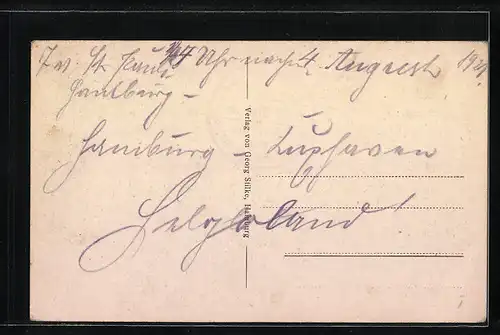 St. Pauli 4 Uhr nachm. 4. August
Hamburg –
Hamburg – Cuxhaven
Helgoland!
Verlag von Georg Stilke, Hamburg